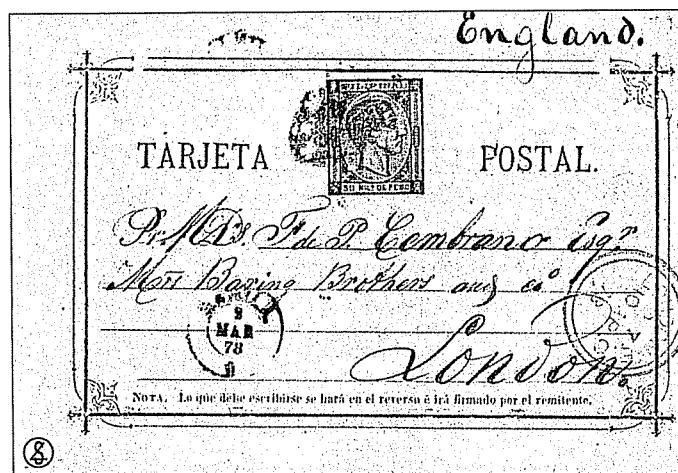 England.
FILIPINAS
TARJETA POSTAL.
50 MILS. DE PESO
F. de P. Cembrano Esqr.
Baring Brothers and Co
MAR
78
London.
NOTA. Lo que debe escribirse se hará en el reverso é irá firmado por el remitente.